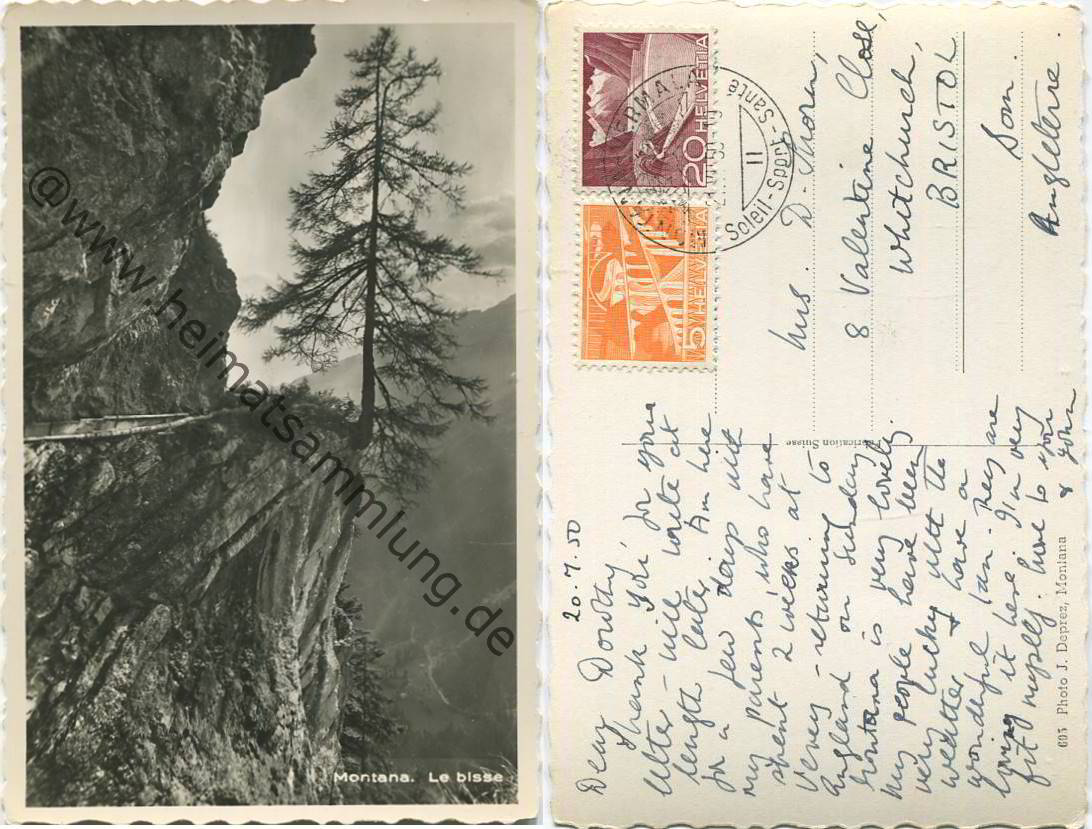 @www.heimatsammlung.de
Montana. Le bisse
20.7.50
Dear Dorothy
Thank you for your
letter - will write at
length later. Am here
for a few days with
my parents who have
spent 2 weeks at
Vevey - returning to
England on Sunday
Montana is very lovely.
My people have been
very lucky with the
weather & have a
wonderful tan - They are
loving it here. I'm very
fit
love to you
& John
Fabrication Suisse
605 Photo J. Deprez, Montana
20 HELVETIA
5 HELVETIA
MONTANA-VERMALA
Soleil-Sport-Santé
11
Mrs. D. Moren,
8 Valentine Close,
Whitchurch,
BRISTOL
Som.
Angleterre